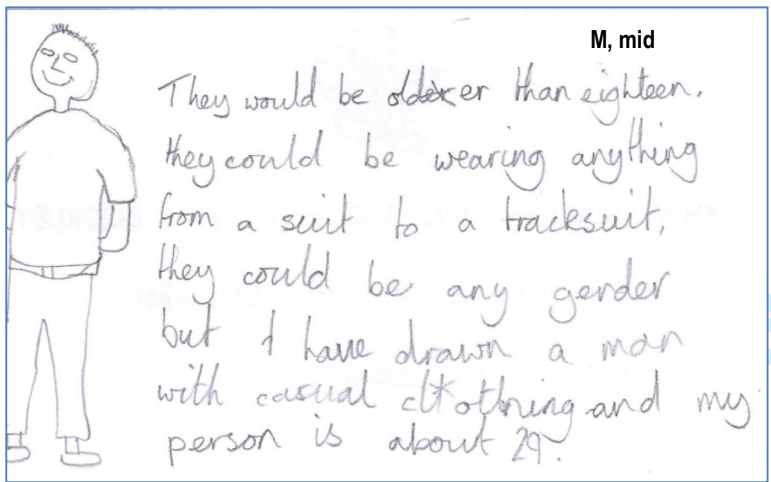 M, mid
They would be olderer than eighteen,
they could be wearing anything
from a suit to a tracksuit,
they could be any gerder
but I have drawn a man
with casual clothing and my
person is about 29.